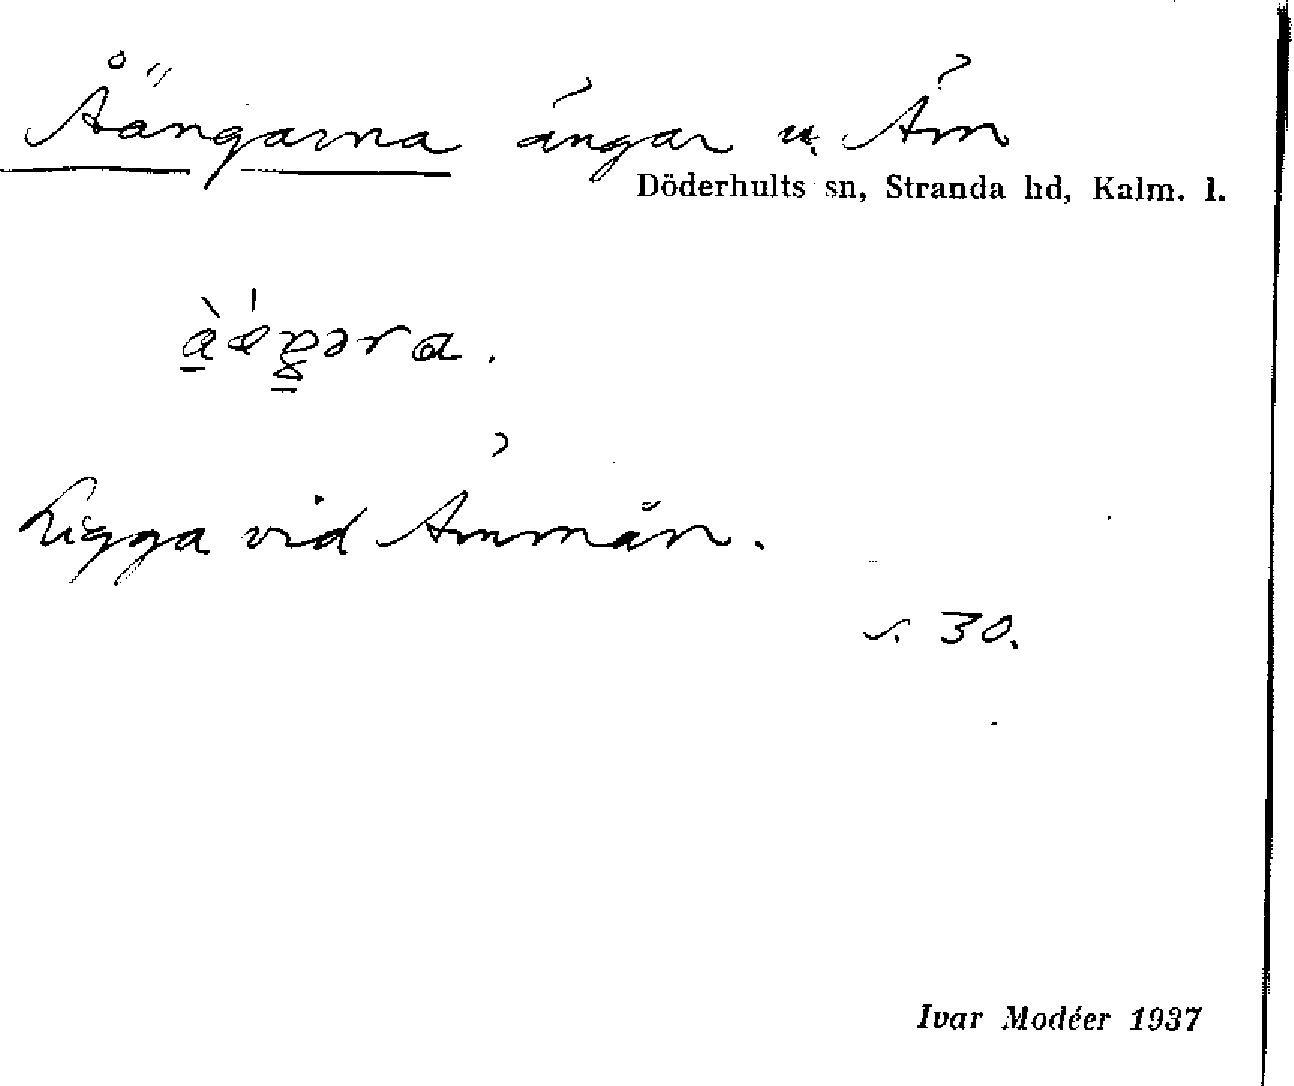 Åängarna ängar u. Äm
Döderhults sn, Stranda hd, Kalm. l.
Ligga vid Ämmån.
s. 30.
Ivar Modéer 1937